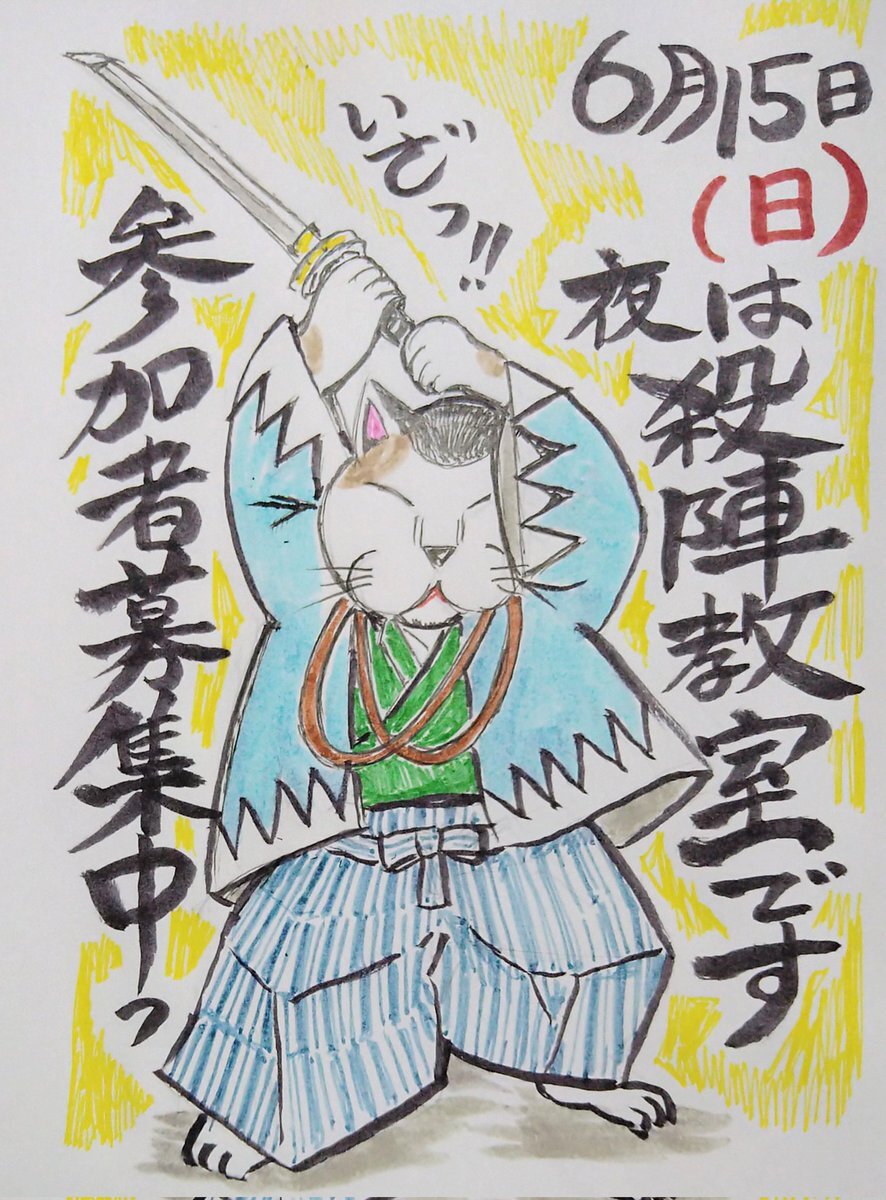 6月15日
(日)
夜は
殺陣教室です
いざっ!!
参加者募集中っ